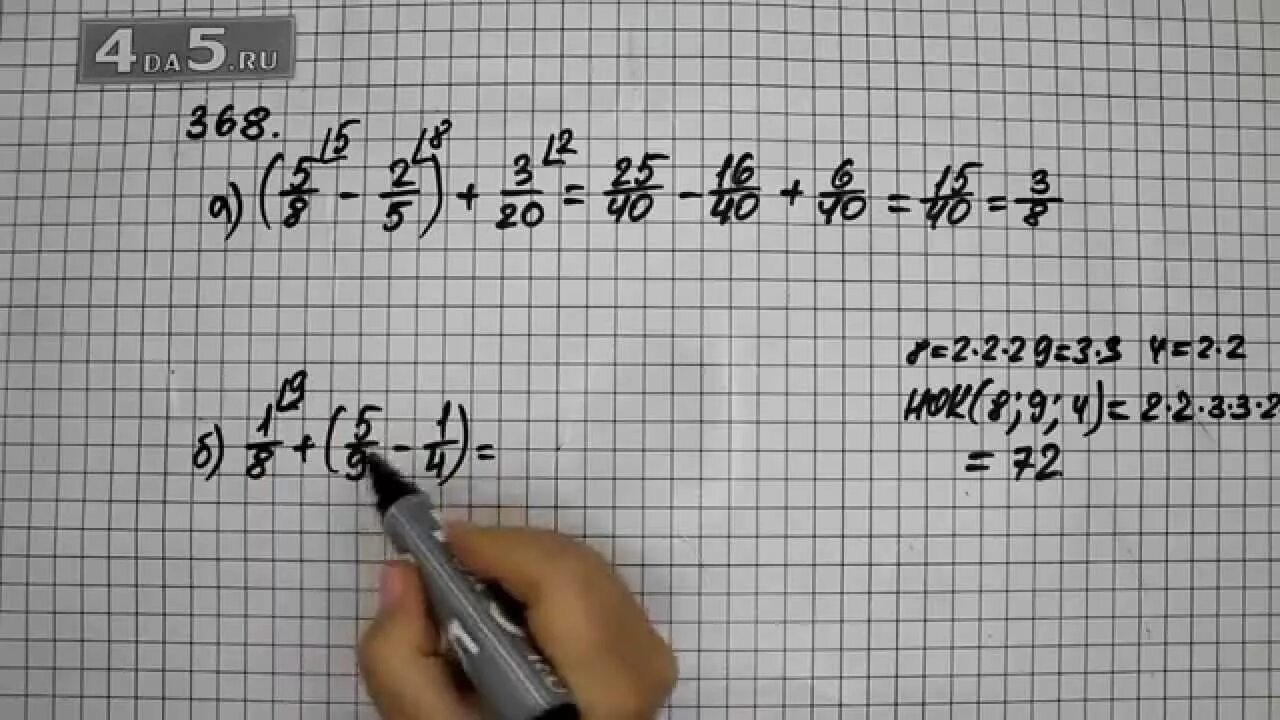 4DA5.RU
368.
а) (5/8 ⌊5 - 2/5 ⌊8) + 3/20 ⌊2 = 25/40 - 16/40 + 6/40 = 15/40 = 3/8
8=2·2·2 9=3·3 4=2·2
НОК(8;9;4)=2·2·3·3·2
= 72
б) 1/8 ⌊9 + (5/9 - 1/4) =